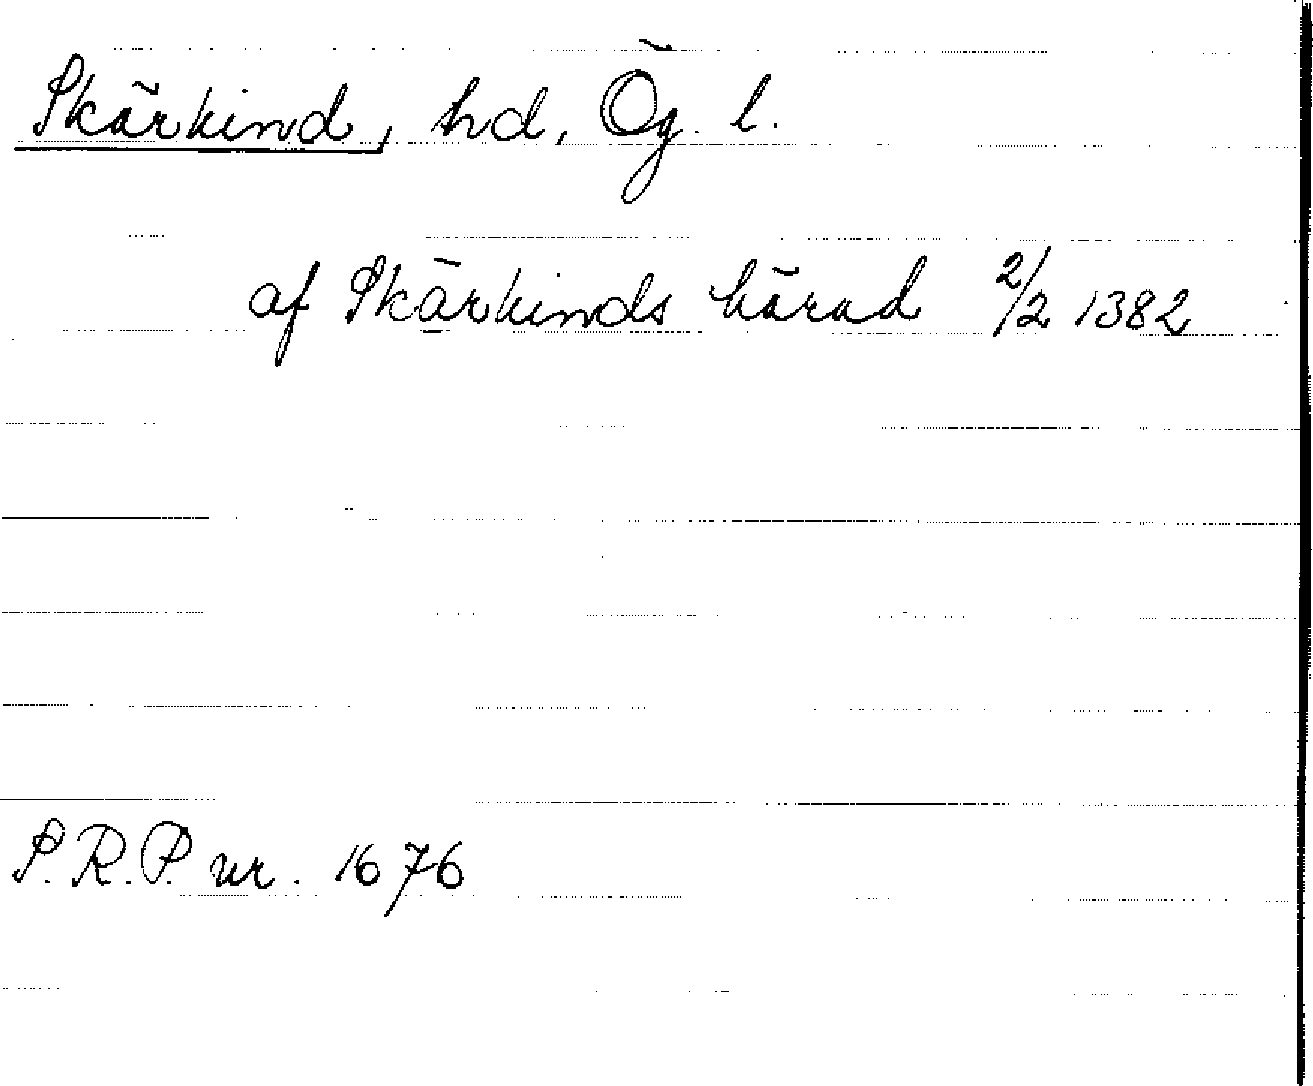 Skärkind, hd, Ög. l.
af Skärkinds härad 2/2 1382
S.R.P. nr. 1676